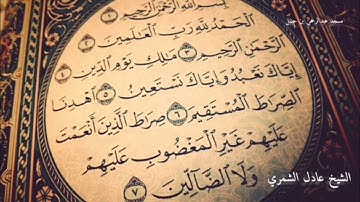 مسجد عبدالرحمن بن جميل
بِسْمِ اللَّهِ الرَّحْمَٰنِ الرَّحِيمِ ١
الْحَمْدُ لِلَّهِ رَبِّ الْعَالَمِينَ ٢
الرَّحْمَٰنِ الرَّحِيمِ ٣ مَالِكِ يَوْمِ الدِّينِ ٤
إِيَّاكَ نَعْبُدُ وَإِيَّاكَ نَسْتَعِينُ ٥ اهْدِنَا
الصِّرَاطَ الْمُسْتَقِيمَ ٦ صِرَاطَ الَّذِينَ أَنْعَمْتَ
عَلَيْهِمْ غَيْرِ الْمَغْضُوبِ عَلَيْهِمْ
وَلَا الضَّالِّينَ ٧
الشيخ عادل الشمري